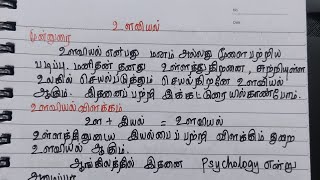 உளவியல்
முன்னுரை
உளவியல் என்பது மனம் அல்லது மூளை பற்றிய
படிப்பு. மனிதன் தனது உள்ளத்து திறனை, சுற்றியுள்ள
உலகில் செயல்படுத்தும் செயல்திறனே உளவியல்
ஆகும். இதனைப் பற்றி இக்கட்டுரையில் காண்போம்.
உளவியல் விளக்கம்
உள + இயல் = உளவியல்
உள்ளத்தினுடைய இயல்பைப் பற்றி விளக்கும் துறை
உளவியல் ஆகும்.
ஆங்கிலத்தில் இதனை Psychology என்று